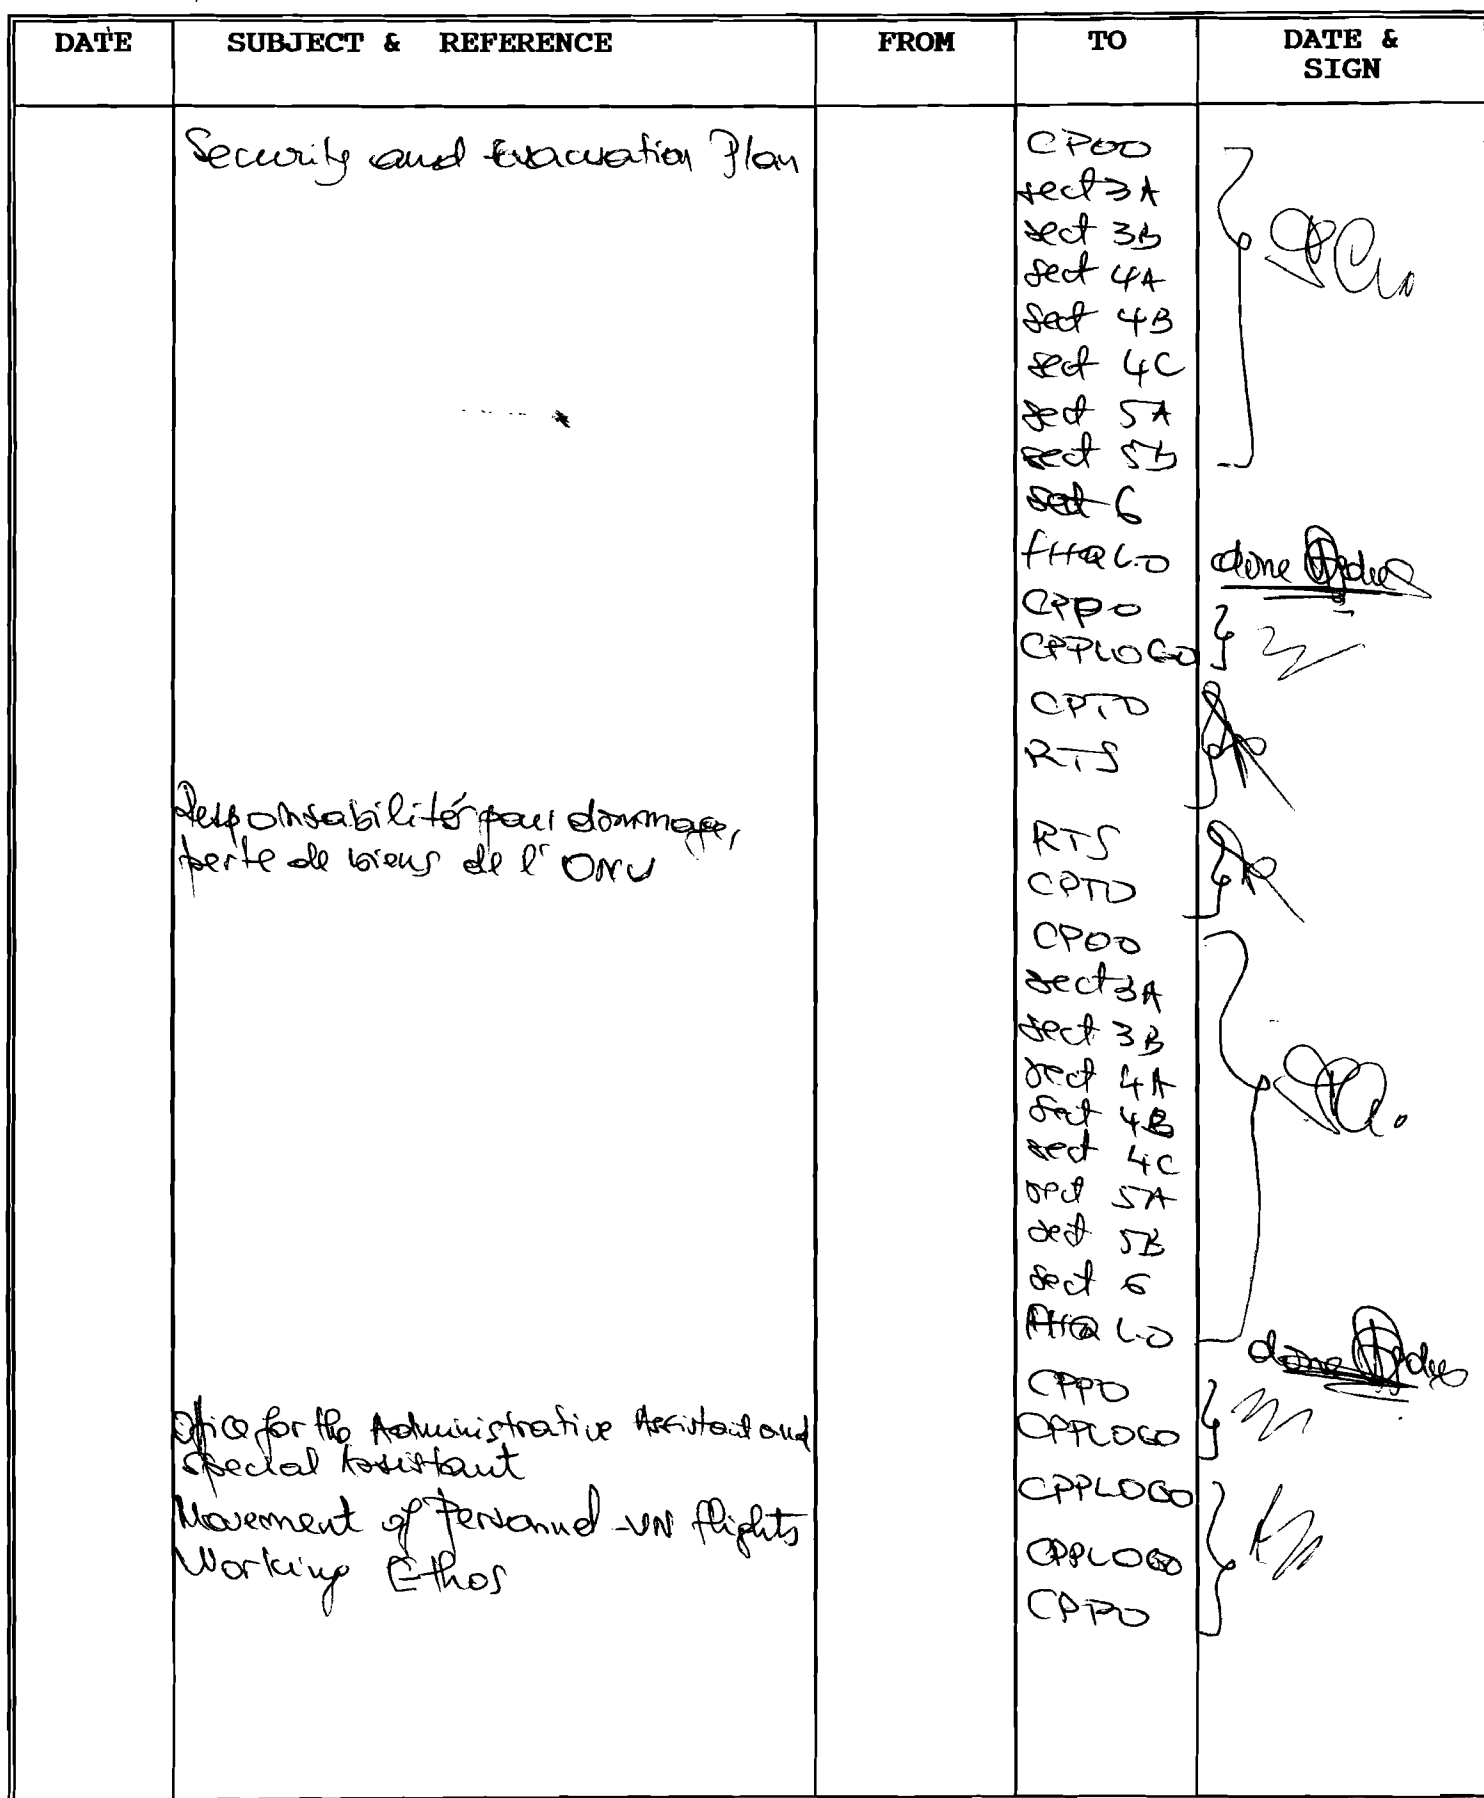 DATE SUBJECT & REFERENCE FROM TO DATE & SIGN
Security and Evacuation Plan CPOO
sect 3A
sect 3B
sect 4A
sect 4B
sect 4C
sect 5A
sect 5B
sect 6
FHQ LO done
CPPO
CPPLOGO
CPTO
RTS
Responsabilité pour dommage,
perte de biens de l'ONU RTS
CPTO
CPOO
sect 3A
sect 3B
sect 4A
sect 4B
sect 4C
sect 5A
sect 5B
sect 6
FHQ LO done
CPPO
Office for the Administrative Assistant and CPPLOGO
Special Assistant CPPLOGO
Movement of Personnel - UN flights
Working Ethos CPPLOGO
CPPO